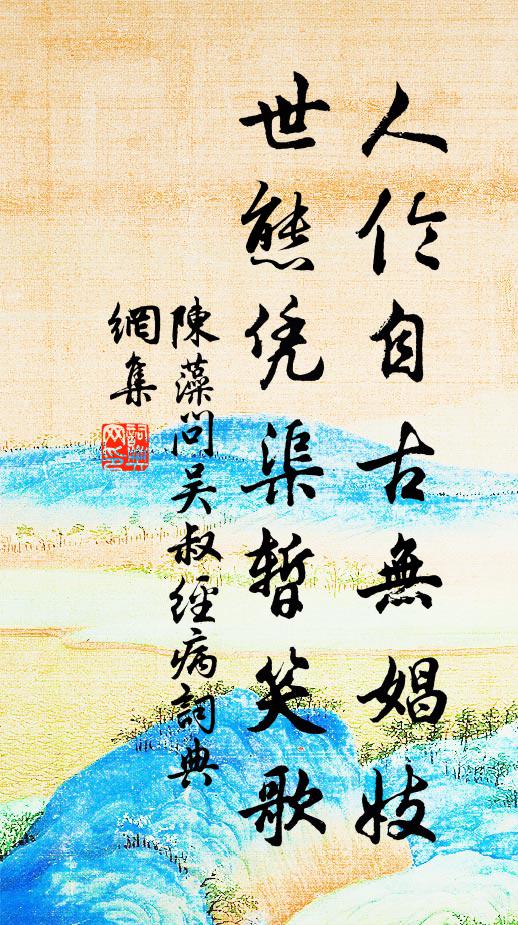 人伦自古無娼妓
世態凭渠暫笑歌
陳藻問吴叔經病詞典
網集